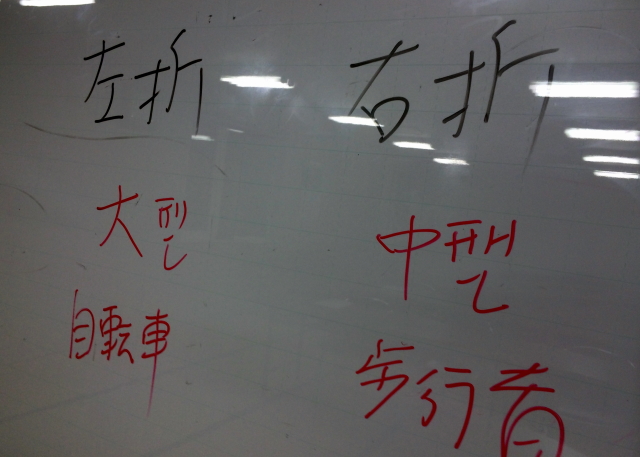 左折
右折
大型
中型
自転車
歩行者